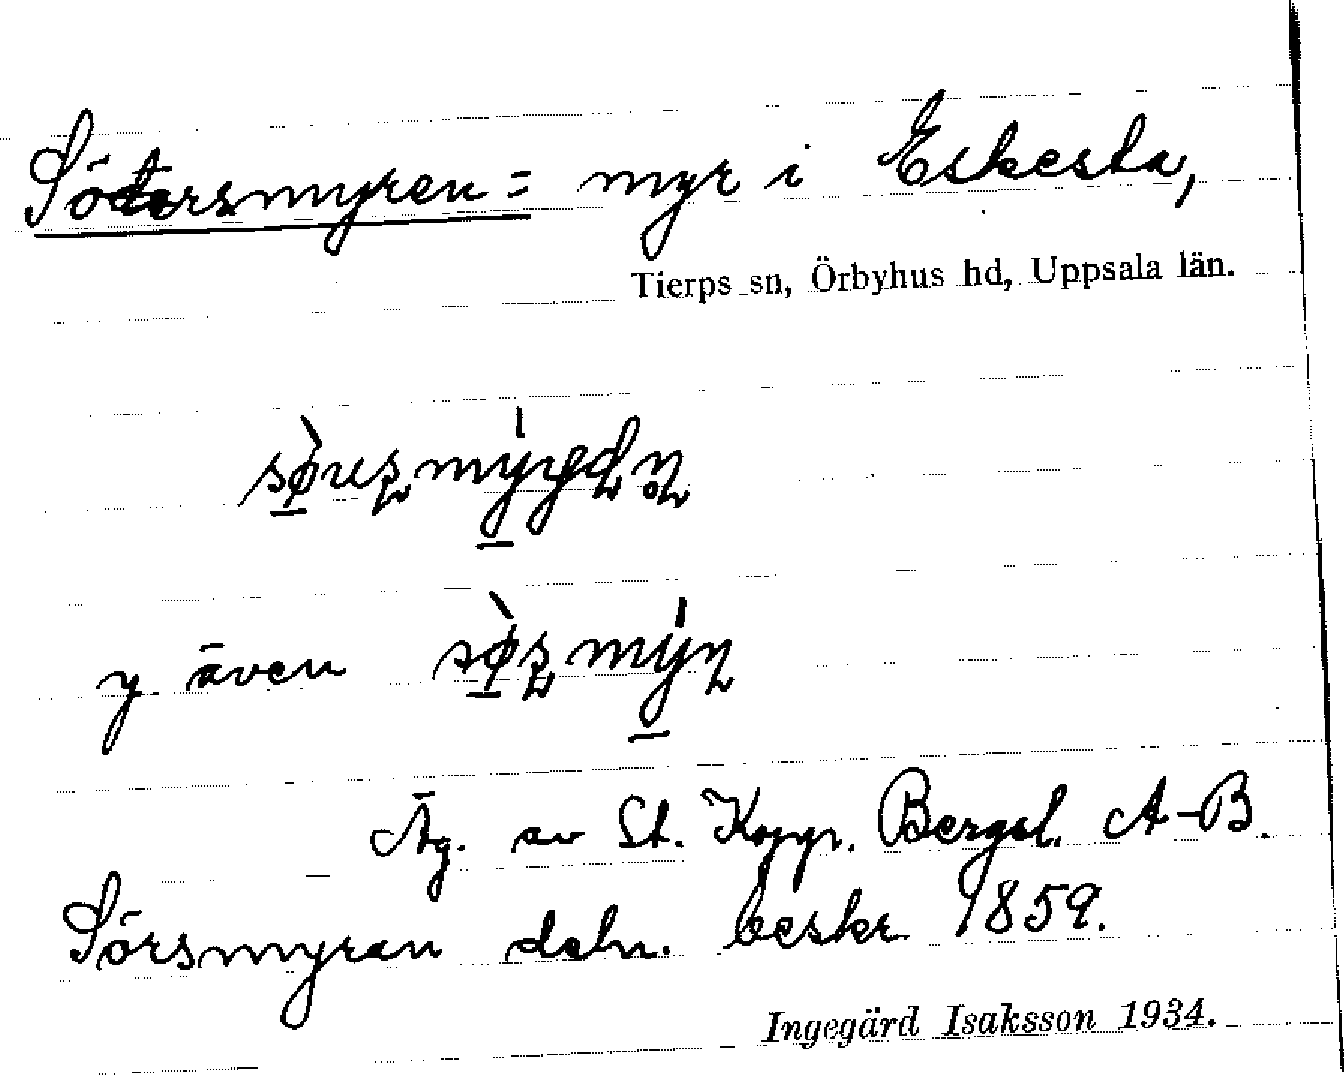 Södersmyren = myr i Eskesta,
Tierps sn, Örbyhus hd, Uppsala län.
y även
Äg. av St. Kopp. Bergsl. A-B.
Sörsmyran deln. beskr. 1859.
Ingegärd Isaksson 1934.